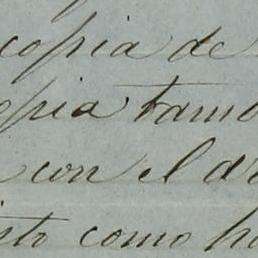 copia de
opia tamb
con el d
isto como h